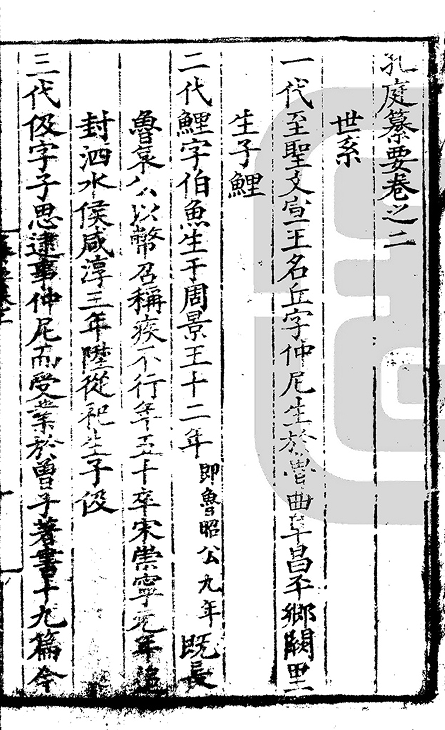 孔庭纂要卷之二
世系
一代至聖文宣王名丘字仲尼生於魯曲阜昌平鄉闕里
生子鯉
二代鯉字伯魚生于周景王十二年即魯昭公九年既長
魯哀公以幣召稱疾不行年五十卒宋崇寧元年追
封泗水侯咸淳三年陞從祀生子伋
三代伋字子思逮事仲尼而受業於曾子著書十九篇今